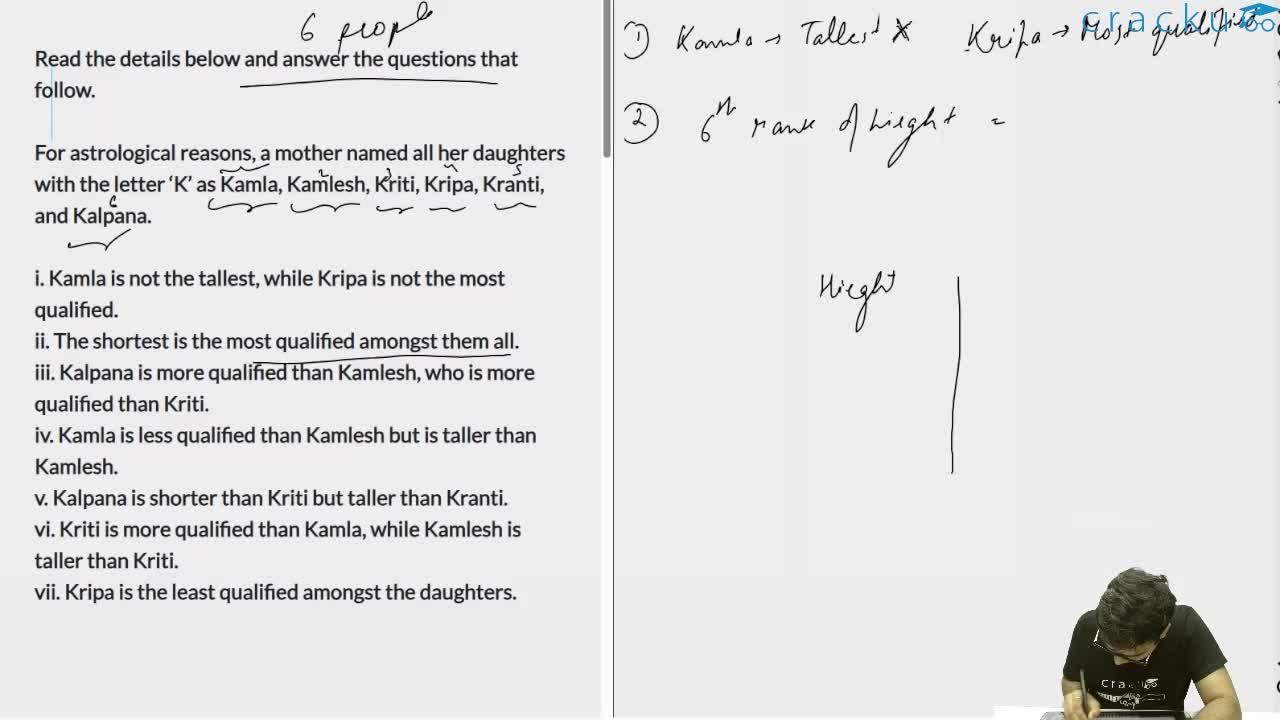 6 people
Read the details below and answer the questions that
follow.
For astrological reasons, a mother named all her daughters
with the letter ‘K’ as Kamla, Kamlesh, Kriti, Kripa, Kranti,
and Kalpana.
i. Kamla is not the tallest, while Kripa is not the most
qualified.
ii. The shortest is the most qualified amongst them all.
iii. Kalpana is more qualified than Kamlesh, who is more
qualified than Kriti.
iv. Kamla is less qualified than Kamlesh but is taller than
Kamlesh.
v. Kalpana is shorter than Kriti but taller than Kranti.
vi. Kriti is more qualified than Kamla, while Kamlesh is
taller than Kriti.
vii. Kripa is the least qualified amongst the daughters.
cracku
① Kamla → Tallest X Kripa → Most qualified
② 6th rank of hieght =
Hieght